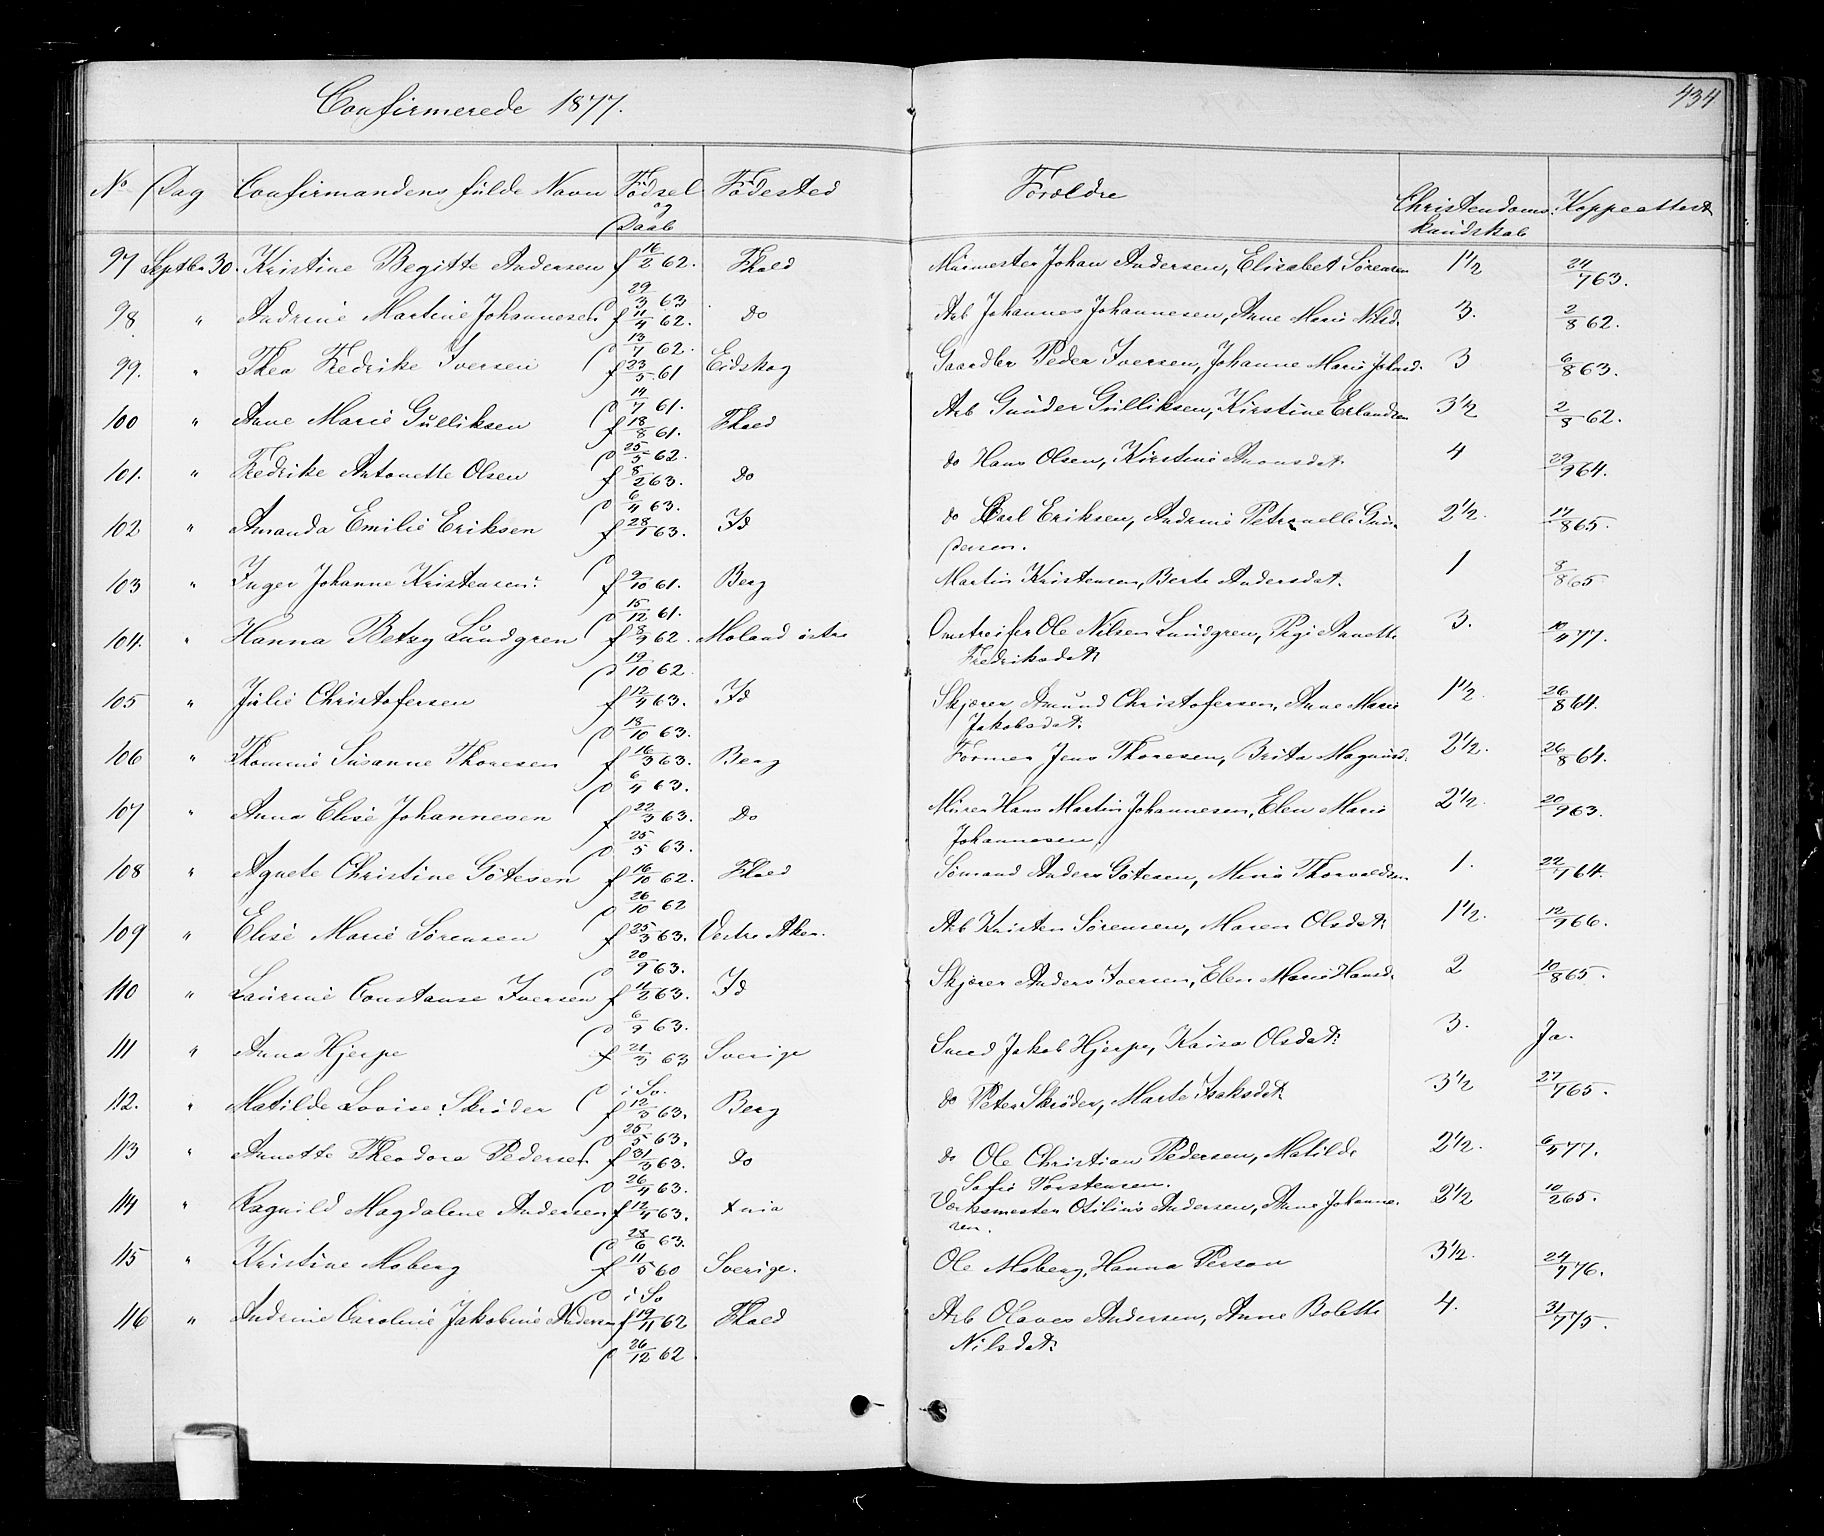 Confirmerede 1877.
434
No Dag Confirmandens fulde Navn Fødsel og Daab Fødested Forældre Christendoms kundskab Koppeattest
97 Septbr 30. Kristine Begitte Andersen f 16/2 62. Fhald Murmester Johan Andersen, Elisabet Sørensen 1 1/2 24/7 63.
D 29/3 63
98 " Andrine Martine Johannesen f 11/4 62. Do Arb Johannes Johannesen, Anne Marie Nilsd. 3. 2/8 62.
D 13/7 62.
99. " Thea Fredrike Iversen f 23/5 61 Eidskog Gaardbr Peder Iversen, Johanne Marie Johnsd. 3 6/8 63.
D 14/7 61.
100 " Anne Marie Gulliksen f 18/8 61. Fhald Arb Gunder Gulliksen, Kirstine Erlandsen 3 1/2 2/8 62.
D 25/5 62.
101. " Fredrike Antonette Olsen f 8/2 63. Do do Hans Olsen, Kirstine Aronsdat. 4 29/9 64.
D 6/4 63.
102 " Amanda Emilie Eriksen f 28/1 63. Id do Carl Eriksen, Andrine Petronelle Gun-
dersen. 2 1/2. 17/8 65.
D
103 " Inger Johanne Kristensen. f 9/10 61. Berg Martin Kristensen, Berte Andersdat. 1 8/8 65
D 15/12 61.
104. " Hanna Betzy Lundgren f 8/9 62. Moland østre Omstreifer Ole Nilsen Lundgren, Pigi Annette
Fredriksdat. 3. 10/4 77.
D 19/10 62.
105 " Julie Christofersen f 12/4 63. Id Skjærer Amund Christofersen, Anne Marie
Jakobsdat. 1 1/2. 26/8 64.
D 18/10 63.
106 " Thomine Susanne Thoresen f 16/3 63. Berg Former Jens Thoresen, Brita Magnusd. 2 1/2. 26/8 64.
D 6/4 63.
107 " Anna Elise Johannesen f 22/3 63. Do Murer Hans Martin Johannesen, Elen Marie
Johannesen. 2 1/2. 20/9 63.
D 25/5 63.
108 " Agnete Christine Götesen f 16/10 62. Fhald Sømand Anders Götesen, Mina Thorvaldsen 1. 22/7 64.
D 26/10 62
109 " Elise Marie Sørensen f 25/3 63. Vestre Aker. Arb Kristen Sørensen, Maren Olsdat. 1 1/2. 12/9 66.
D 20/9 63.
110 " Laurine Constanse Iversen f 11/2 63. Id Skjærer Anders Iversen, Elen Marie Hansd. 2 10/8 65.
D 6/9 63.
111 " Anna Hjerpe f 21/3 63 Sverige Smed Jakob Hjerpe, Kaisa Olsdat. 3. Ja.
D i Sv.
112. " Matilde Lovise Skrøder f 12/3 63. Berg do Peter Skrøder, Marte Isaksdat. 3 1/2 27/7 65.
D 25/5 63.
113 " Annette Theodora Pedersen f 31/3 63. Do do Ole Christian Pedersen, Matilde
Sofie Torstensen. 2 1/2. 6/4 77.
D 26/4 63.
114 " Ragnild Magdalene Andersen f 12/4 63. Xnia Værksmester Otilius Andersen, Anne Johanne-
sen. 2 1/2 10/2 65.
D 28/6 63.
115 " Kristine Moberg f 11/5 60 Sverige. Ole Moberg, Hanna Person 3 1/2. 24/7 76.
D i Sv
116 " Andrine Caroline Jakobine Andersen f 19/11 62 Fhald Arb Olaves Andersen, Anne Bolette
Nilsdat. 4. 31/7 75.
D 26/12 62.